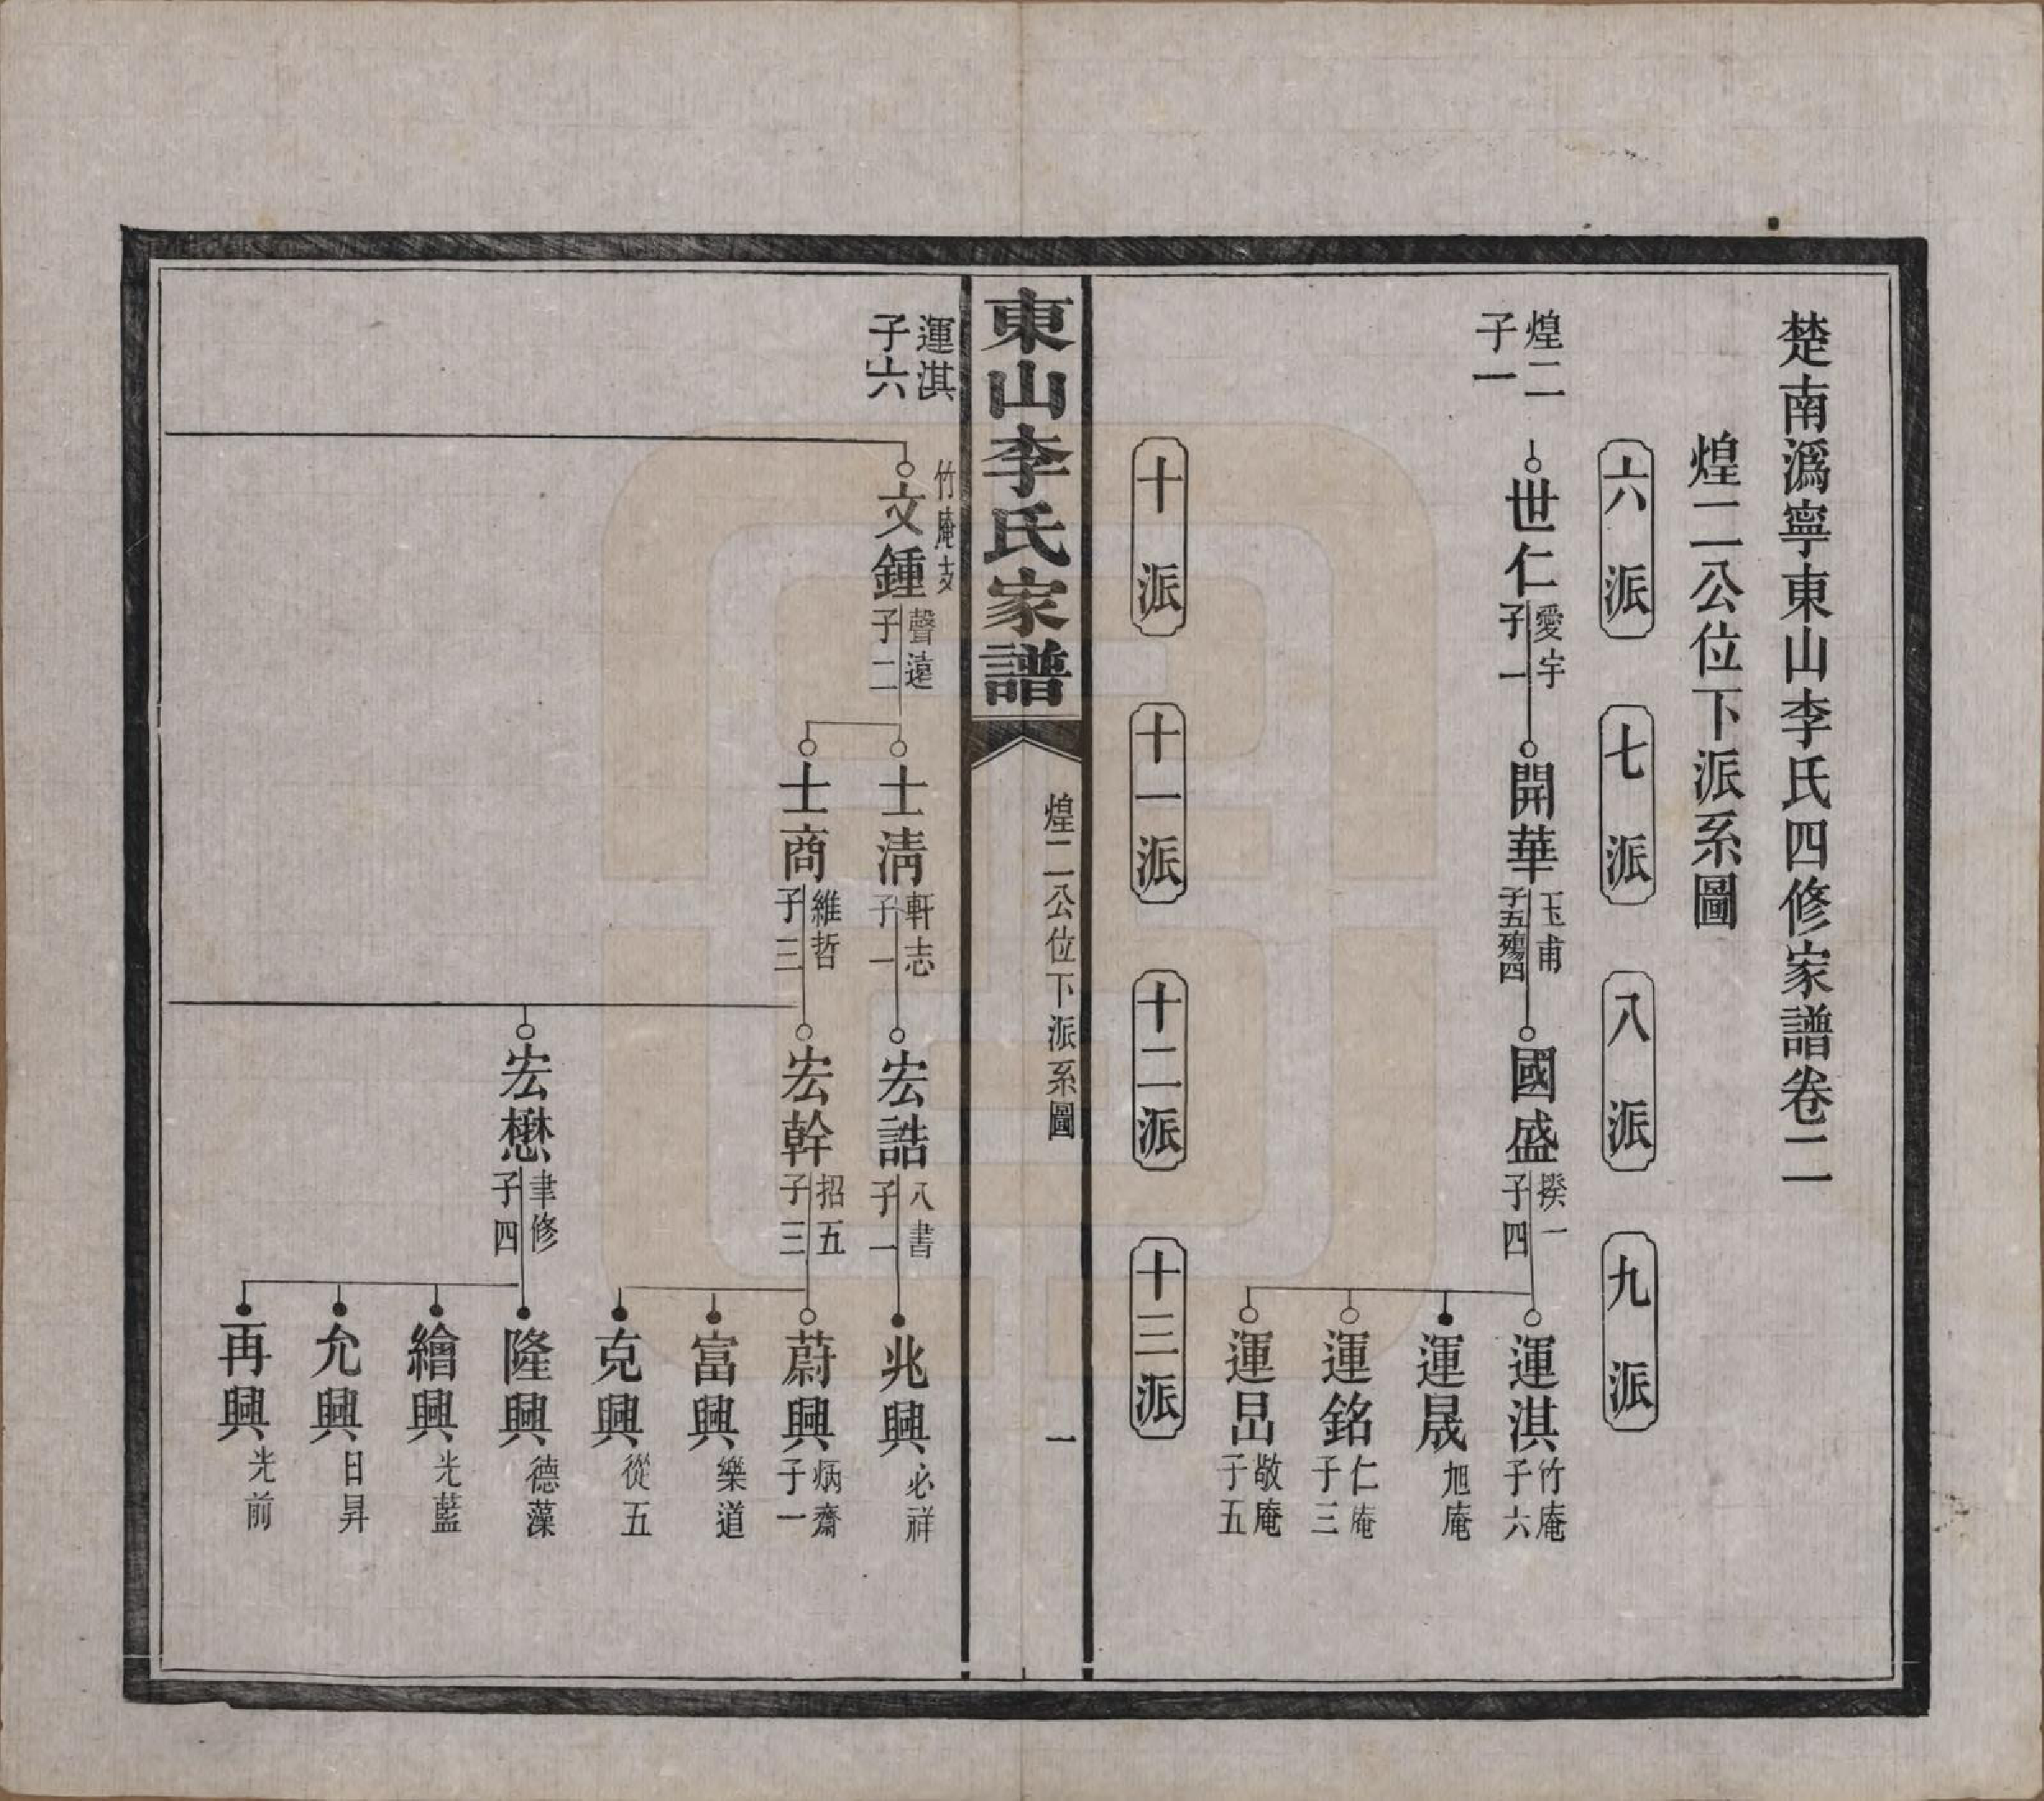 楚南溈寧東山李氏四修家譜卷二
煌二公位下派系圖
六派
七派
八派
九派
煌二
子一
世仁
愛宇
子一
開華
玉甫
子五殤四
國盛
揆一
子四
運淇
竹庵
子六
運晟
旭庵
運銘
仁庵
子三
運昌
敬庵
子五
十派
十一派
十二派
十三派
東山李氏家譜
煌二公位下派系圖
一
運淇
子六
竹庵支
文鍾
聲遠
子二
士清
軒志
子一
宏誥
八書
子一
兆興
必祥
士商
維哲
子三
宏幹
招五
子三
蔚興
炳齋
子一
富興
樂道
克興
從五
宏懋
聿修
子四
隆興
德藻
繪興
光藍
允興
日昇
再興
光前